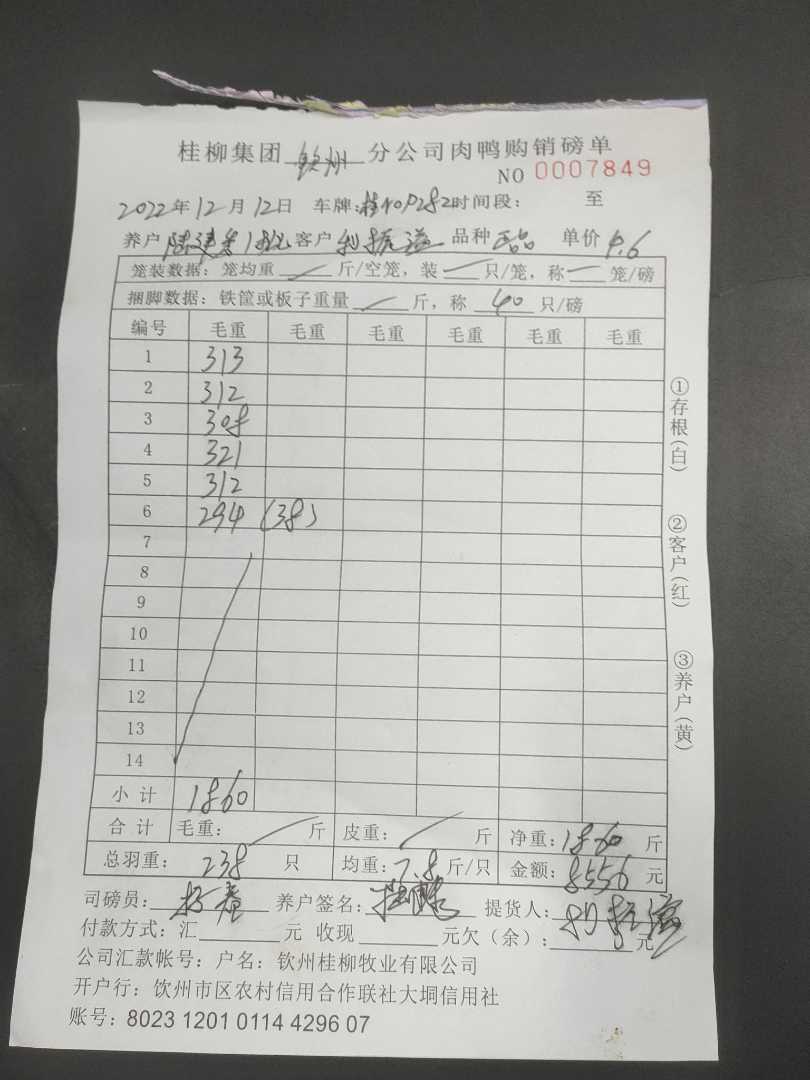 桂柳集团 钦州 分公司肉鸭购销磅单
NO 0007849
2022年12月12日 车牌: 时间段: 至
养户 客户 品种 正品 单价 4.6
笼装数据: 笼均重 / 斤/空笼, 装 / 只/笼, 称 / 笼/磅
捆脚数据: 铁筐或板子重量 / 斤, 称 40 只/磅
编号 毛重 毛重 毛重 毛重 毛重 毛重
1 313
2 312
3 308
4 321
5 312
6 294 (38)
7
8
9
10
11
12
13
14
小计 1860
合计 毛重: / 斤 皮重: / 斤 净重: 1860 斤
总羽重: 238 只 均重: 7.8 斤/只 金额: 8556 元
司磅员: 养户签名: 提货人:
付款方式: 汇 元 收现 元欠(余): 元
公司汇款帐号: 户名: 钦州桂柳牧业有限公司
开户行: 钦州市区农村信用合作联社大垌信用社
账号: 8023 1201 0114 4296 07
①存根(白)
②客户(红)
③养户(黄)